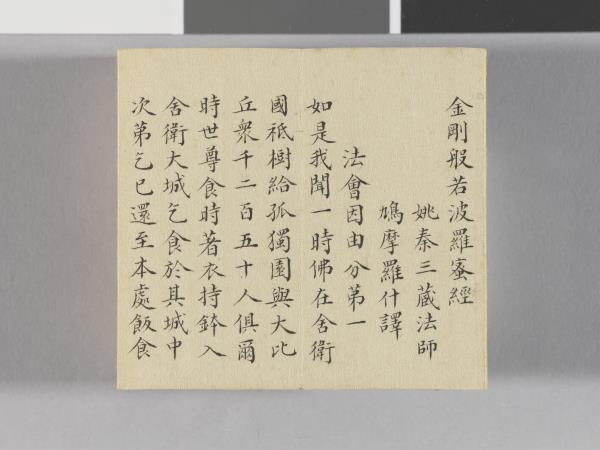 金剛般若波羅蜜經
姚秦三藏法師
鳩摩羅什譯
法會因由分第一
如是我聞一時佛在舍衛
國祇樹給孤獨園與大比
丘衆千二百五十人俱爾
時世尊食時著衣持鉢入
舍衛大城乞食於其城中
次第乞已還至本處飯食